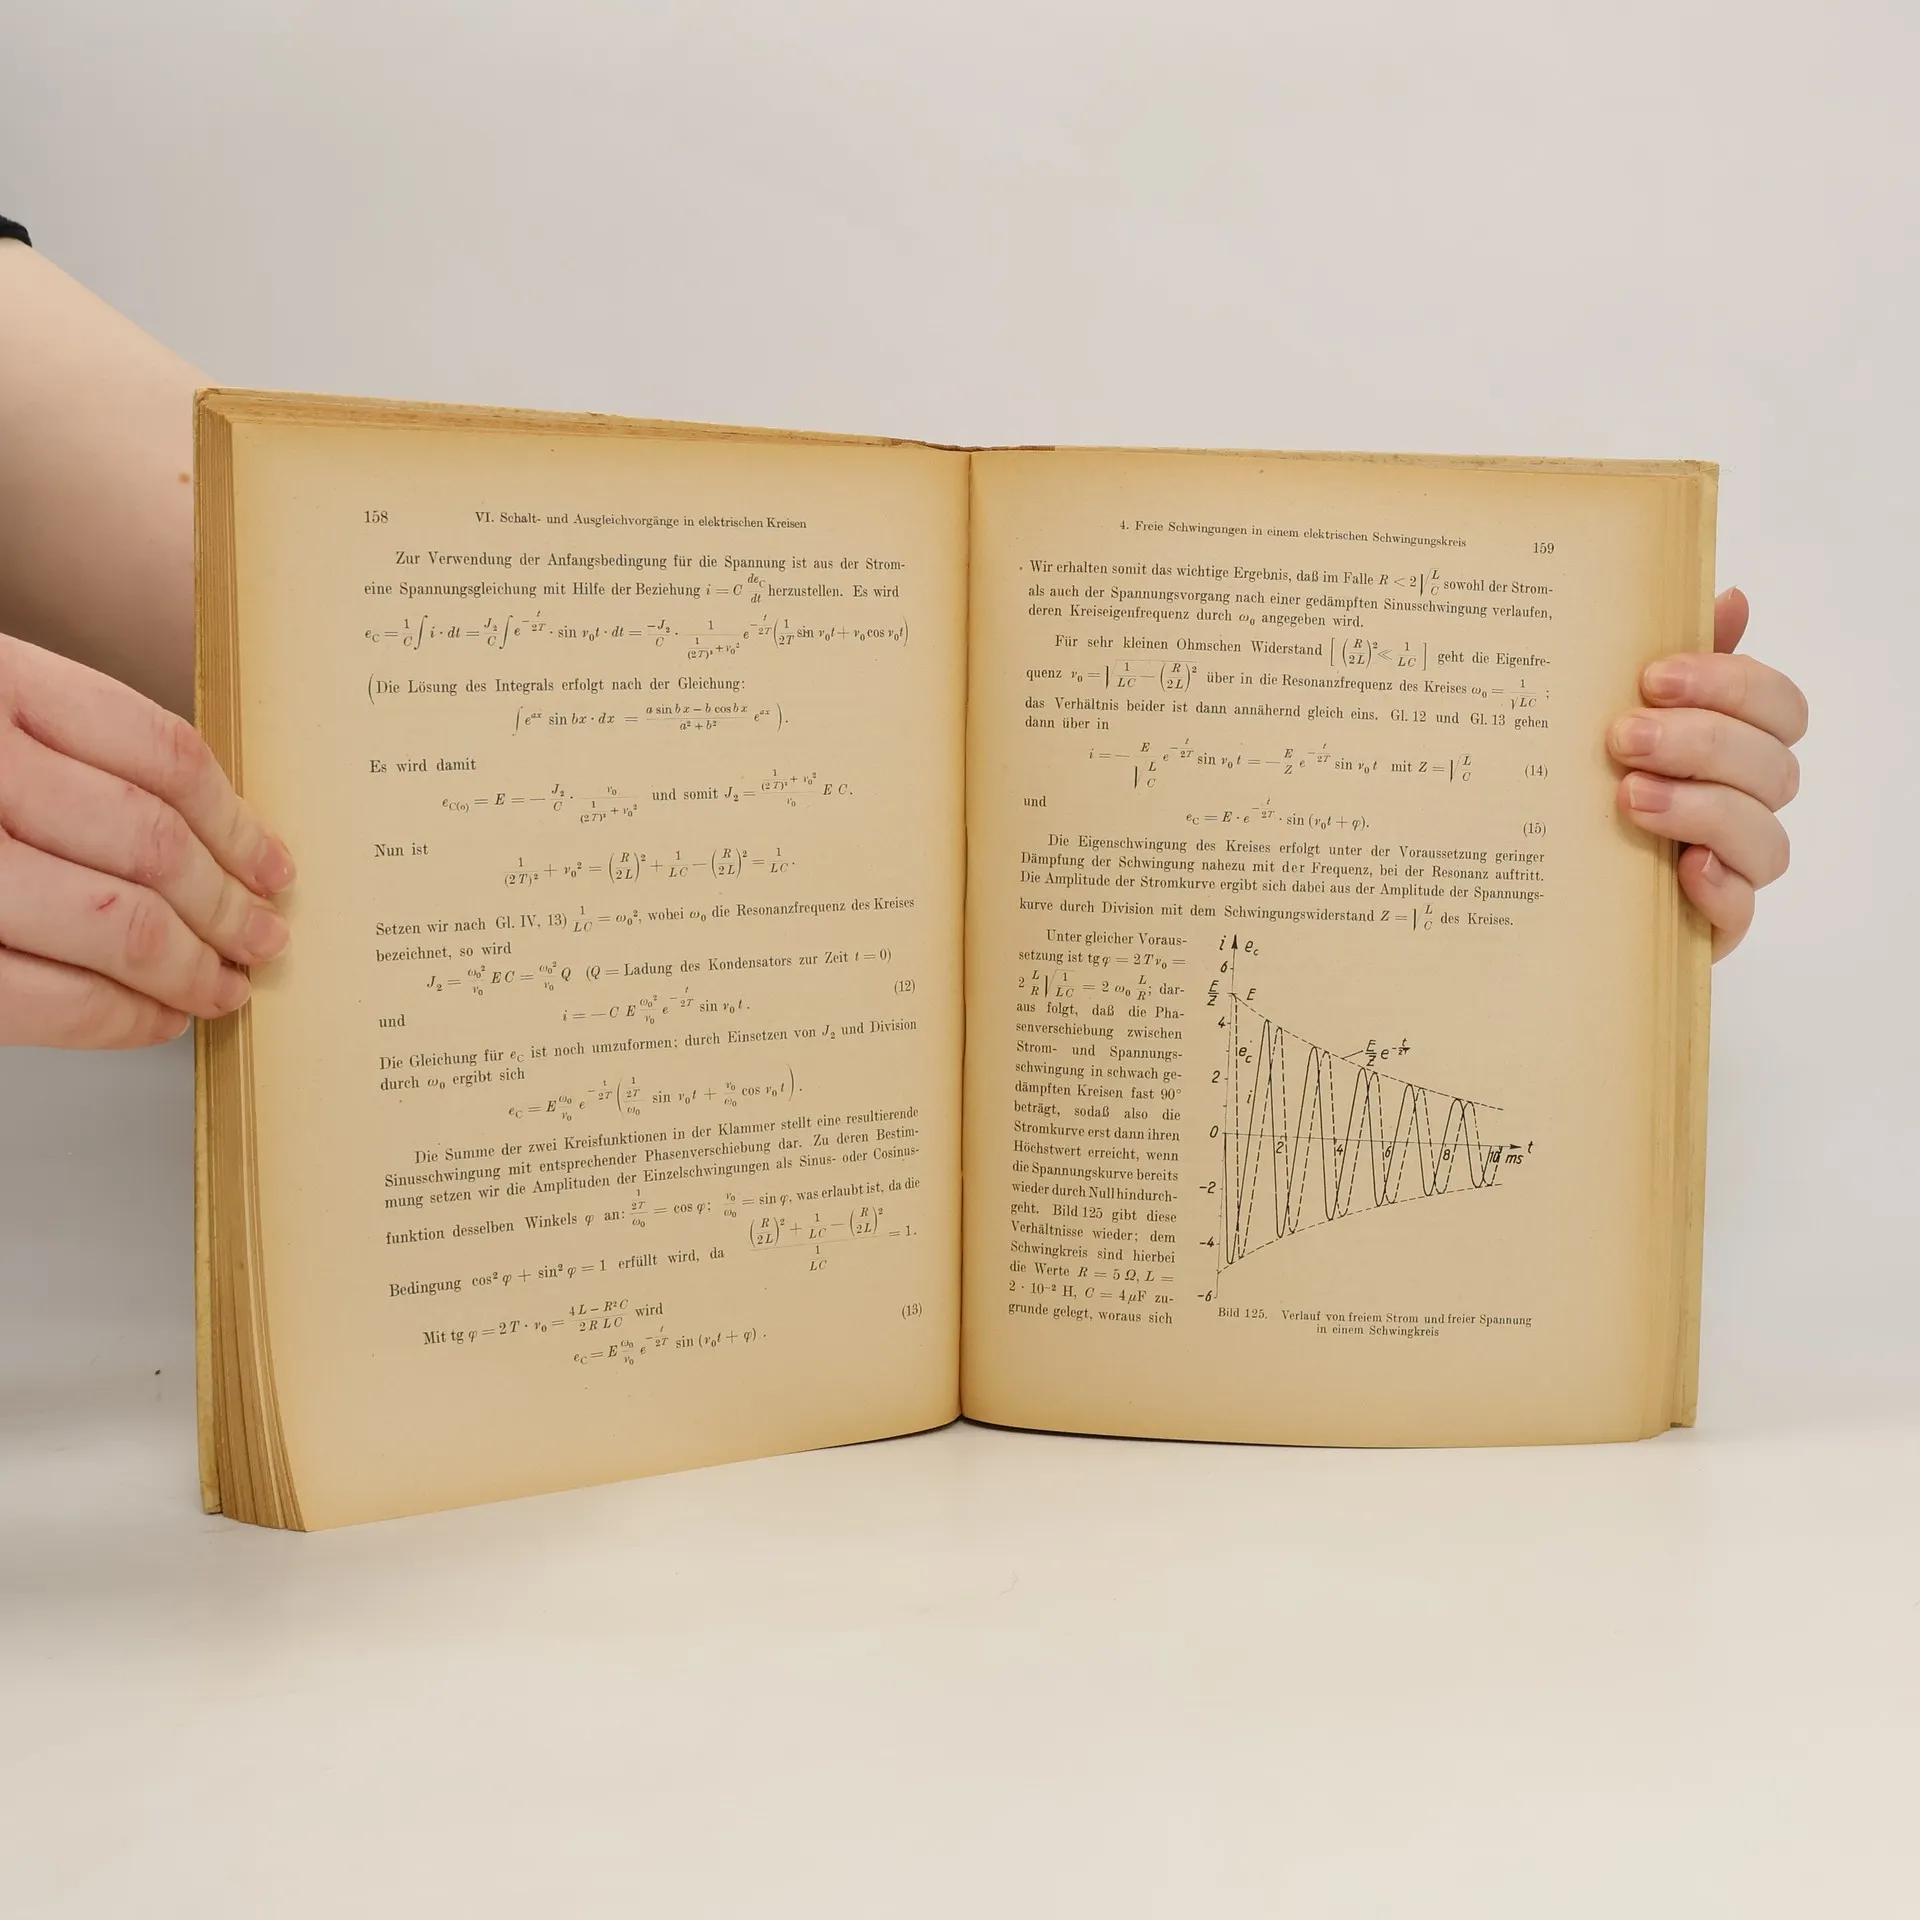 158 VI. Schalt- und Ausgleichvorgänge in elektrischen Kreisen
Zur Verwendung der Anfangsbedingung für die Spannung ist aus der Strom-
eine Spannungsgleichung mit Hilfe der Beziehung i = C de_C/dt herzustellen. Es wird
e_C = 1/C ∫ i · dt = J₂/C ∫ e^(−t/2T) · sin ν₀t · dt = −J₂/C · 1/(1/(2T)² + ν₀²) e^(−t/2T) (1/2T sin ν₀t + ν₀ cos ν₀t)
(Die Lösung des Integrals erfolgt nach der Gleichung:
∫ e^(ax) sin bx · dx = (a sin bx − b cos bx)/(a² + b²) e^(ax) ).
Es wird damit
e_C(o) = E = − J₂/C · ν₀/(1/(2T)² + ν₀²) und somit J₂ = (1/(2T)² + ν₀²)/ν₀ E C.
Nun ist
1/(2T)² + ν₀² = (R/2L)² + 1/LC − (R/2L)² = 1/LC.
Setzen wir nach Gl. IV, 13) 1/LC = ω₀², wobei ω₀ die Resonanzfrequenz des Kreises
bezeichnet, so wird
J₂ = ω₀²/ν₀ E C = ω₀²/ν₀ Q (Q = Ladung des Kondensators zur Zeit t = 0)
und i = − C E ω₀²/ν₀ e^(−t/2T) sin ν₀t. (12)
Die Gleichung für e_C ist noch umzuformen; durch Einsetzen von J₂ und Division
durch ω₀ ergibt sich
e_C = E ω₀/ν₀ e^(−t/2T) ((1/2T)/ω₀ sin ν₀t + ν₀/ω₀ cos ν₀t).
Die Summe der zwei Kreisfunktionen in der Klammer stellt eine resultierende
Sinusschwingung mit entsprechender Phasenverschiebung dar. Zu deren Bestim-
mung setzen wir die Amplituden der Einzelschwingungen als Sinus- oder Cosinus-
funktion desselben Winkels φ an: (1/2T)/ω₀ = cos φ; ν₀/ω₀ = sin φ, was erlaubt ist, da die
Bedingung cos² φ + sin² φ = 1 erfüllt wird, da ((R/2L)² + 1/LC − (R/2L)²)/(1/LC) = 1.
Mit tg φ = 2T · ν₀ = (4L − R²C)/(2RLC) wird
e_C = E ω₀/ν₀ e^(−t/2T) sin (ν₀t + φ). (13)
4. Freie Schwingungen in einem elektrischen Schwingungskreis 159
Wir erhalten somit das wichtige Ergebnis, daß im Falle R < 2 √(L/C) sowohl der Strom-
als auch der Spannungsvorgang nach einer gedämpften Sinusschwingung verlaufen,
deren Kreiseigenfrequenz durch ω₀ angegeben wird.
Für sehr kleinen Ohmschen Widerstand [(R/2L)² ≪ 1/LC] geht die Eigenfre-
quenz ν₀ = √(1/LC − (R/2L)²) über in die Resonanzfrequenz des Kreises ω₀ = 1/√LC ;
das Verhältnis beider ist dann annähernd gleich eins. Gl. 12 und Gl. 13 gehen
dann über in
i = − E/√(L/C) e^(−t/2T) sin ν₀t = − E/Z e^(−t/2T) sin ν₀t mit Z = √(L/C) (14)
und
e_C = E · e^(−t/2T) · sin (ν₀t + φ). (15)
Die Eigenschwingung des Kreises erfolgt unter der Voraussetzung geringer
Dämpfung der Schwingung nahezu mit der Frequenz, bei der Resonanz auftritt.
Die Amplitude der Stromkurve ergibt sich dabei aus der Amplitude der Spannungs-
kurve durch Division mit dem Schwingungswiderstand Z = √(L/C) des Kreises.
Unter gleicher Voraus-
setzung ist tg φ = 2 T ν₀ =
2 L/R √(1/LC) = 2 ω₀ L/R; dar-
aus folgt, daß die Pha-
senverschiebung zwischen
Strom- und Spannungs-
schwingung in schwach ge-
dämpften Kreisen fast 90°
beträgt, sodaß also die
Stromkurve erst dann ihren
Höchstwert erreicht, wenn
die Spannungskurve bereits
wieder durch Null hindurch-
geht. Bild 125 gibt diese
Verhältnisse wieder; dem
Schwingkreis sind hierbei
die Werte R = 5 Ω, L =
2 · 10⁻² H, C = 4 μF zu-
grunde gelegt, woraus sich
i e_c
6
E/Z E
4
E/Z e^(−t/2T)
e_c
2
i
0 2 4 6 8 10 ms t
−2
−4
−6
Bild 125. Verlauf von freiem Strom und freier Spannung
in einem Schwingkreis